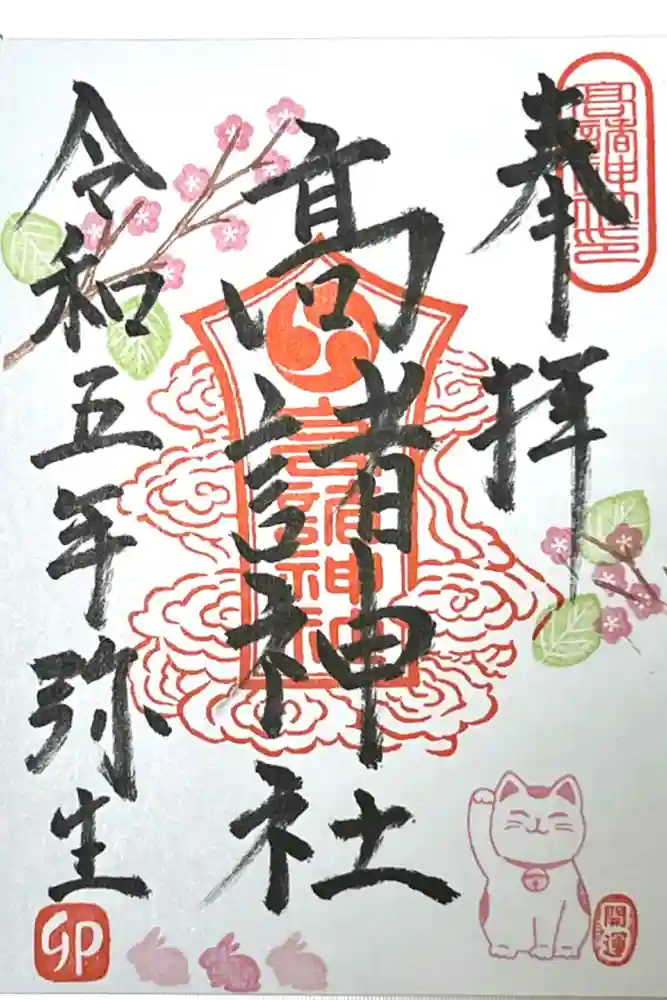 奉拝
高諸神社
令和五年弥生
高諸神社
卯
開運